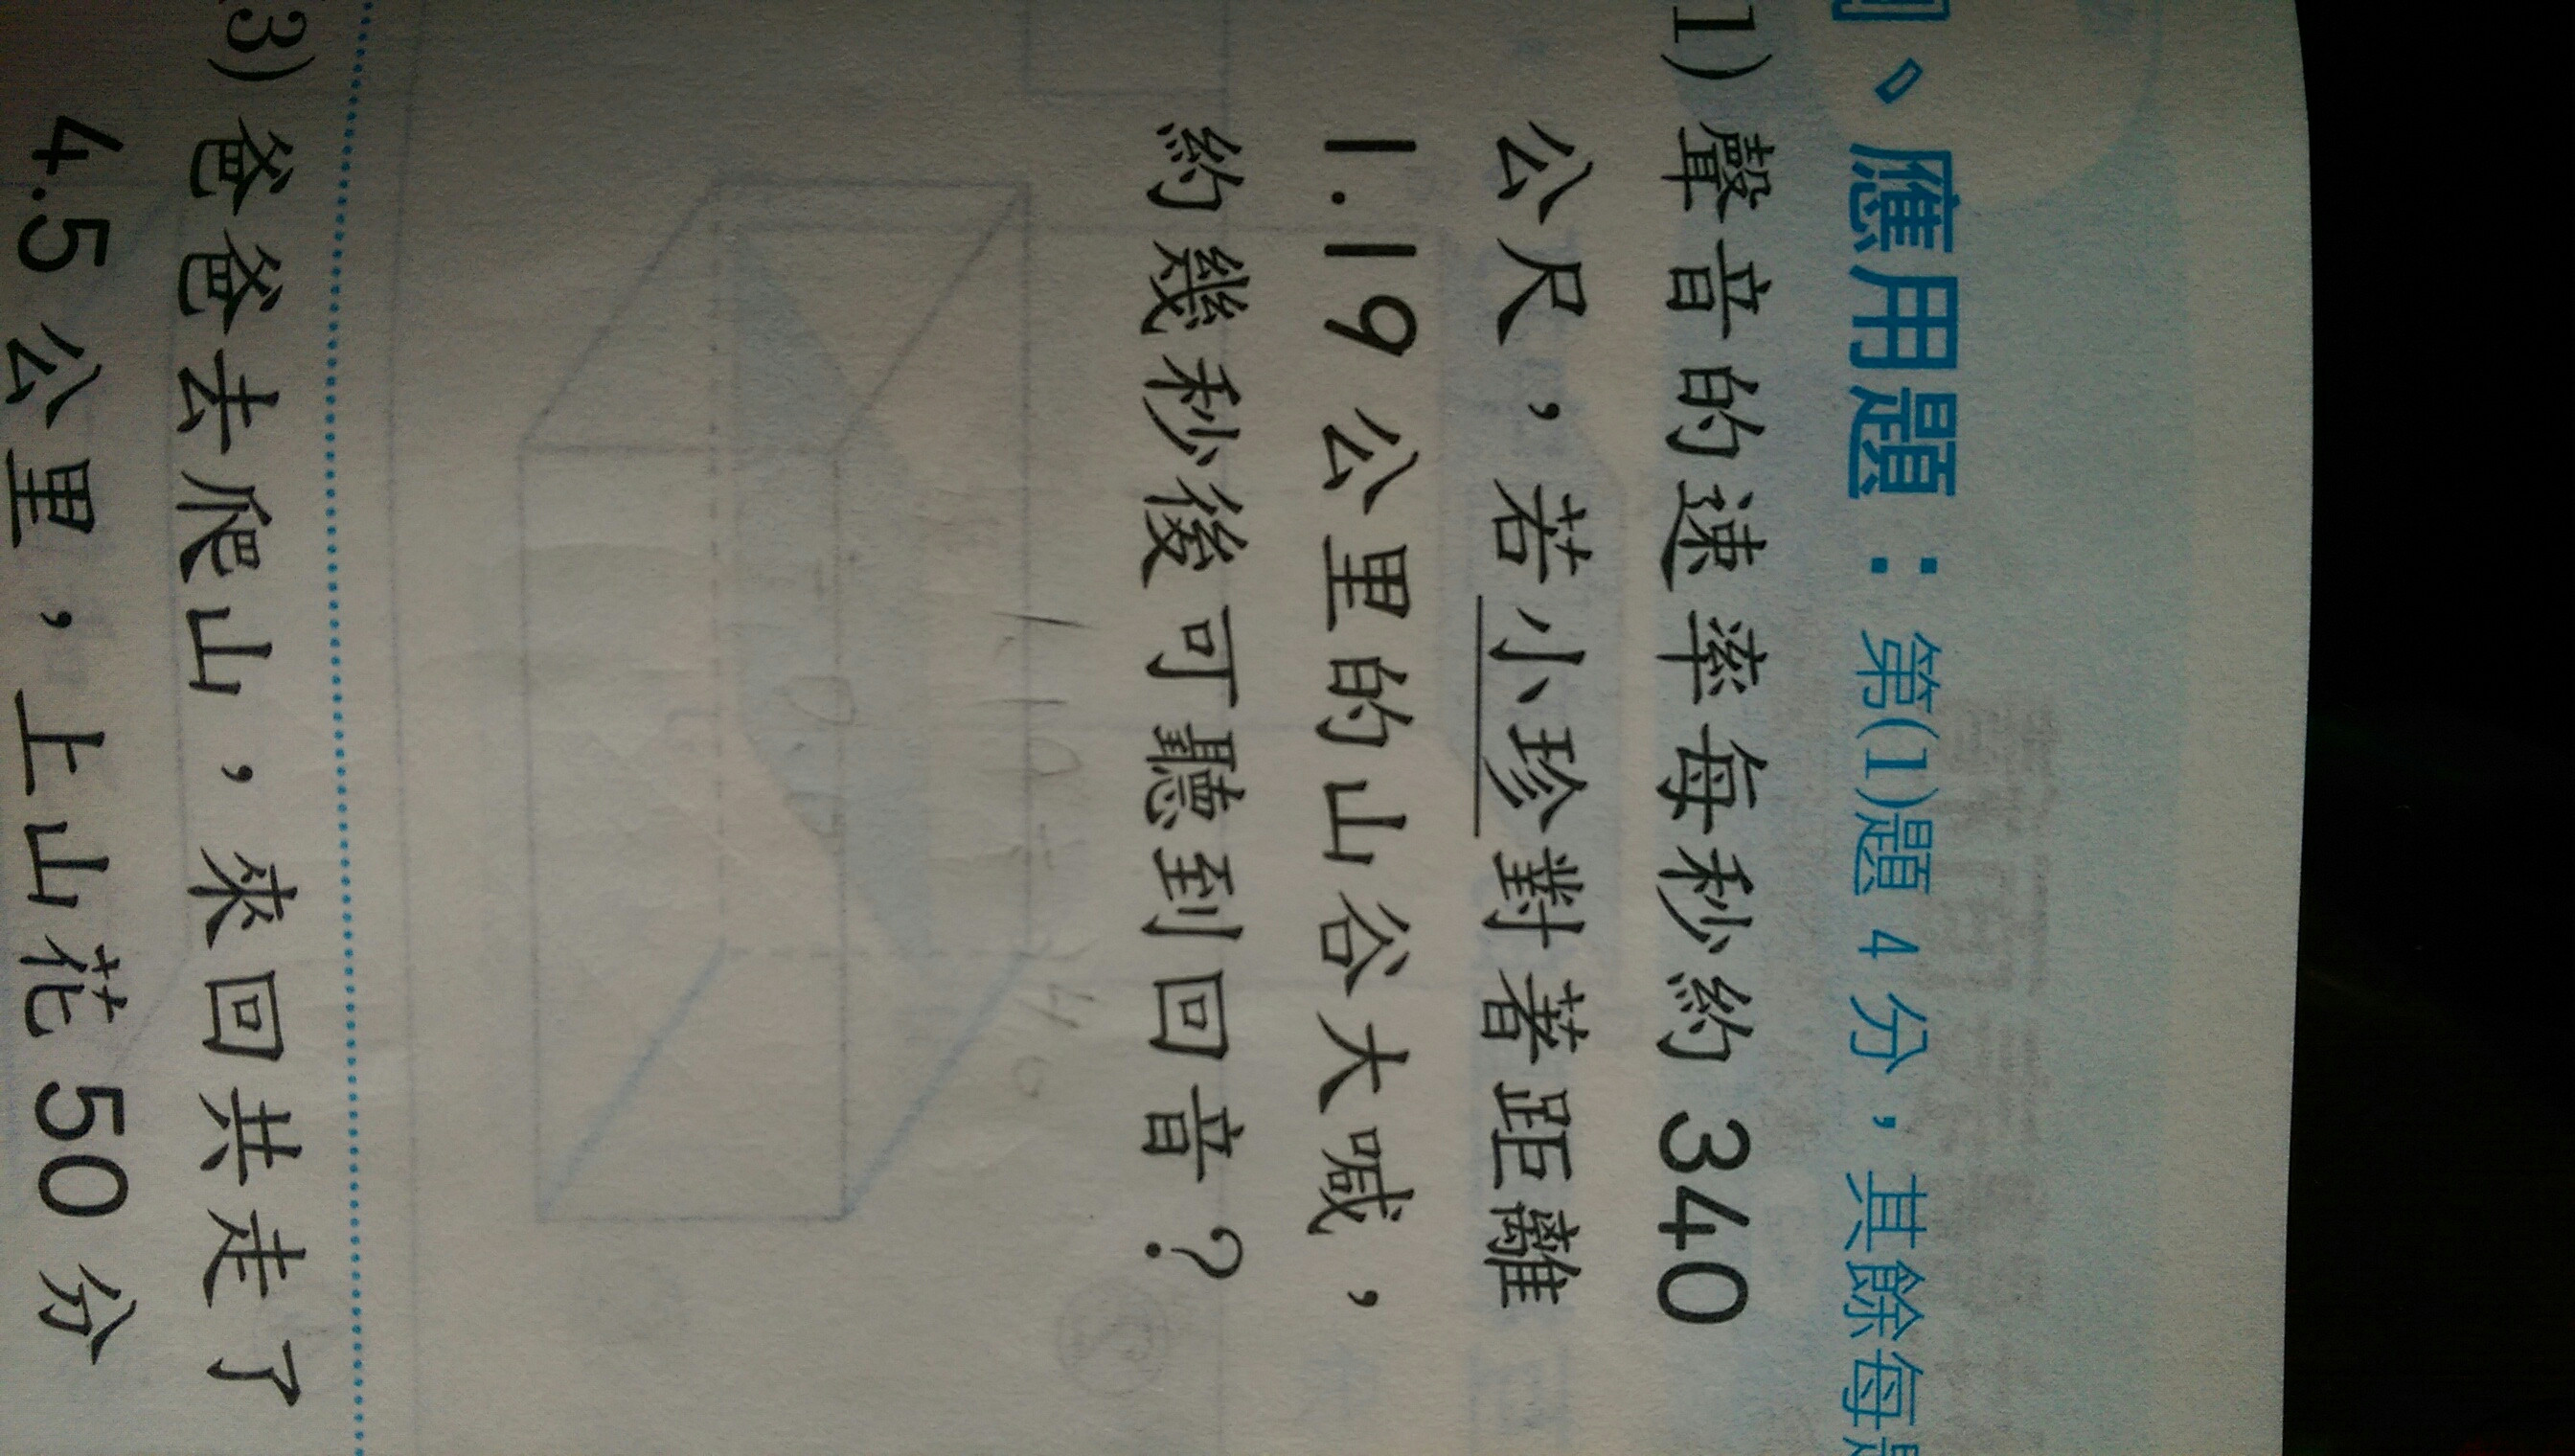 、應用題：第(1)題 4 分，其餘每
1) 聲音的速率每秒約 340
公尺，若小珍對著距離
1.19 公里的山谷大喊，
約幾秒後可聽到回音？
3) 爸爸去爬山，來回共走了
4.5 公里，上山花 50 分